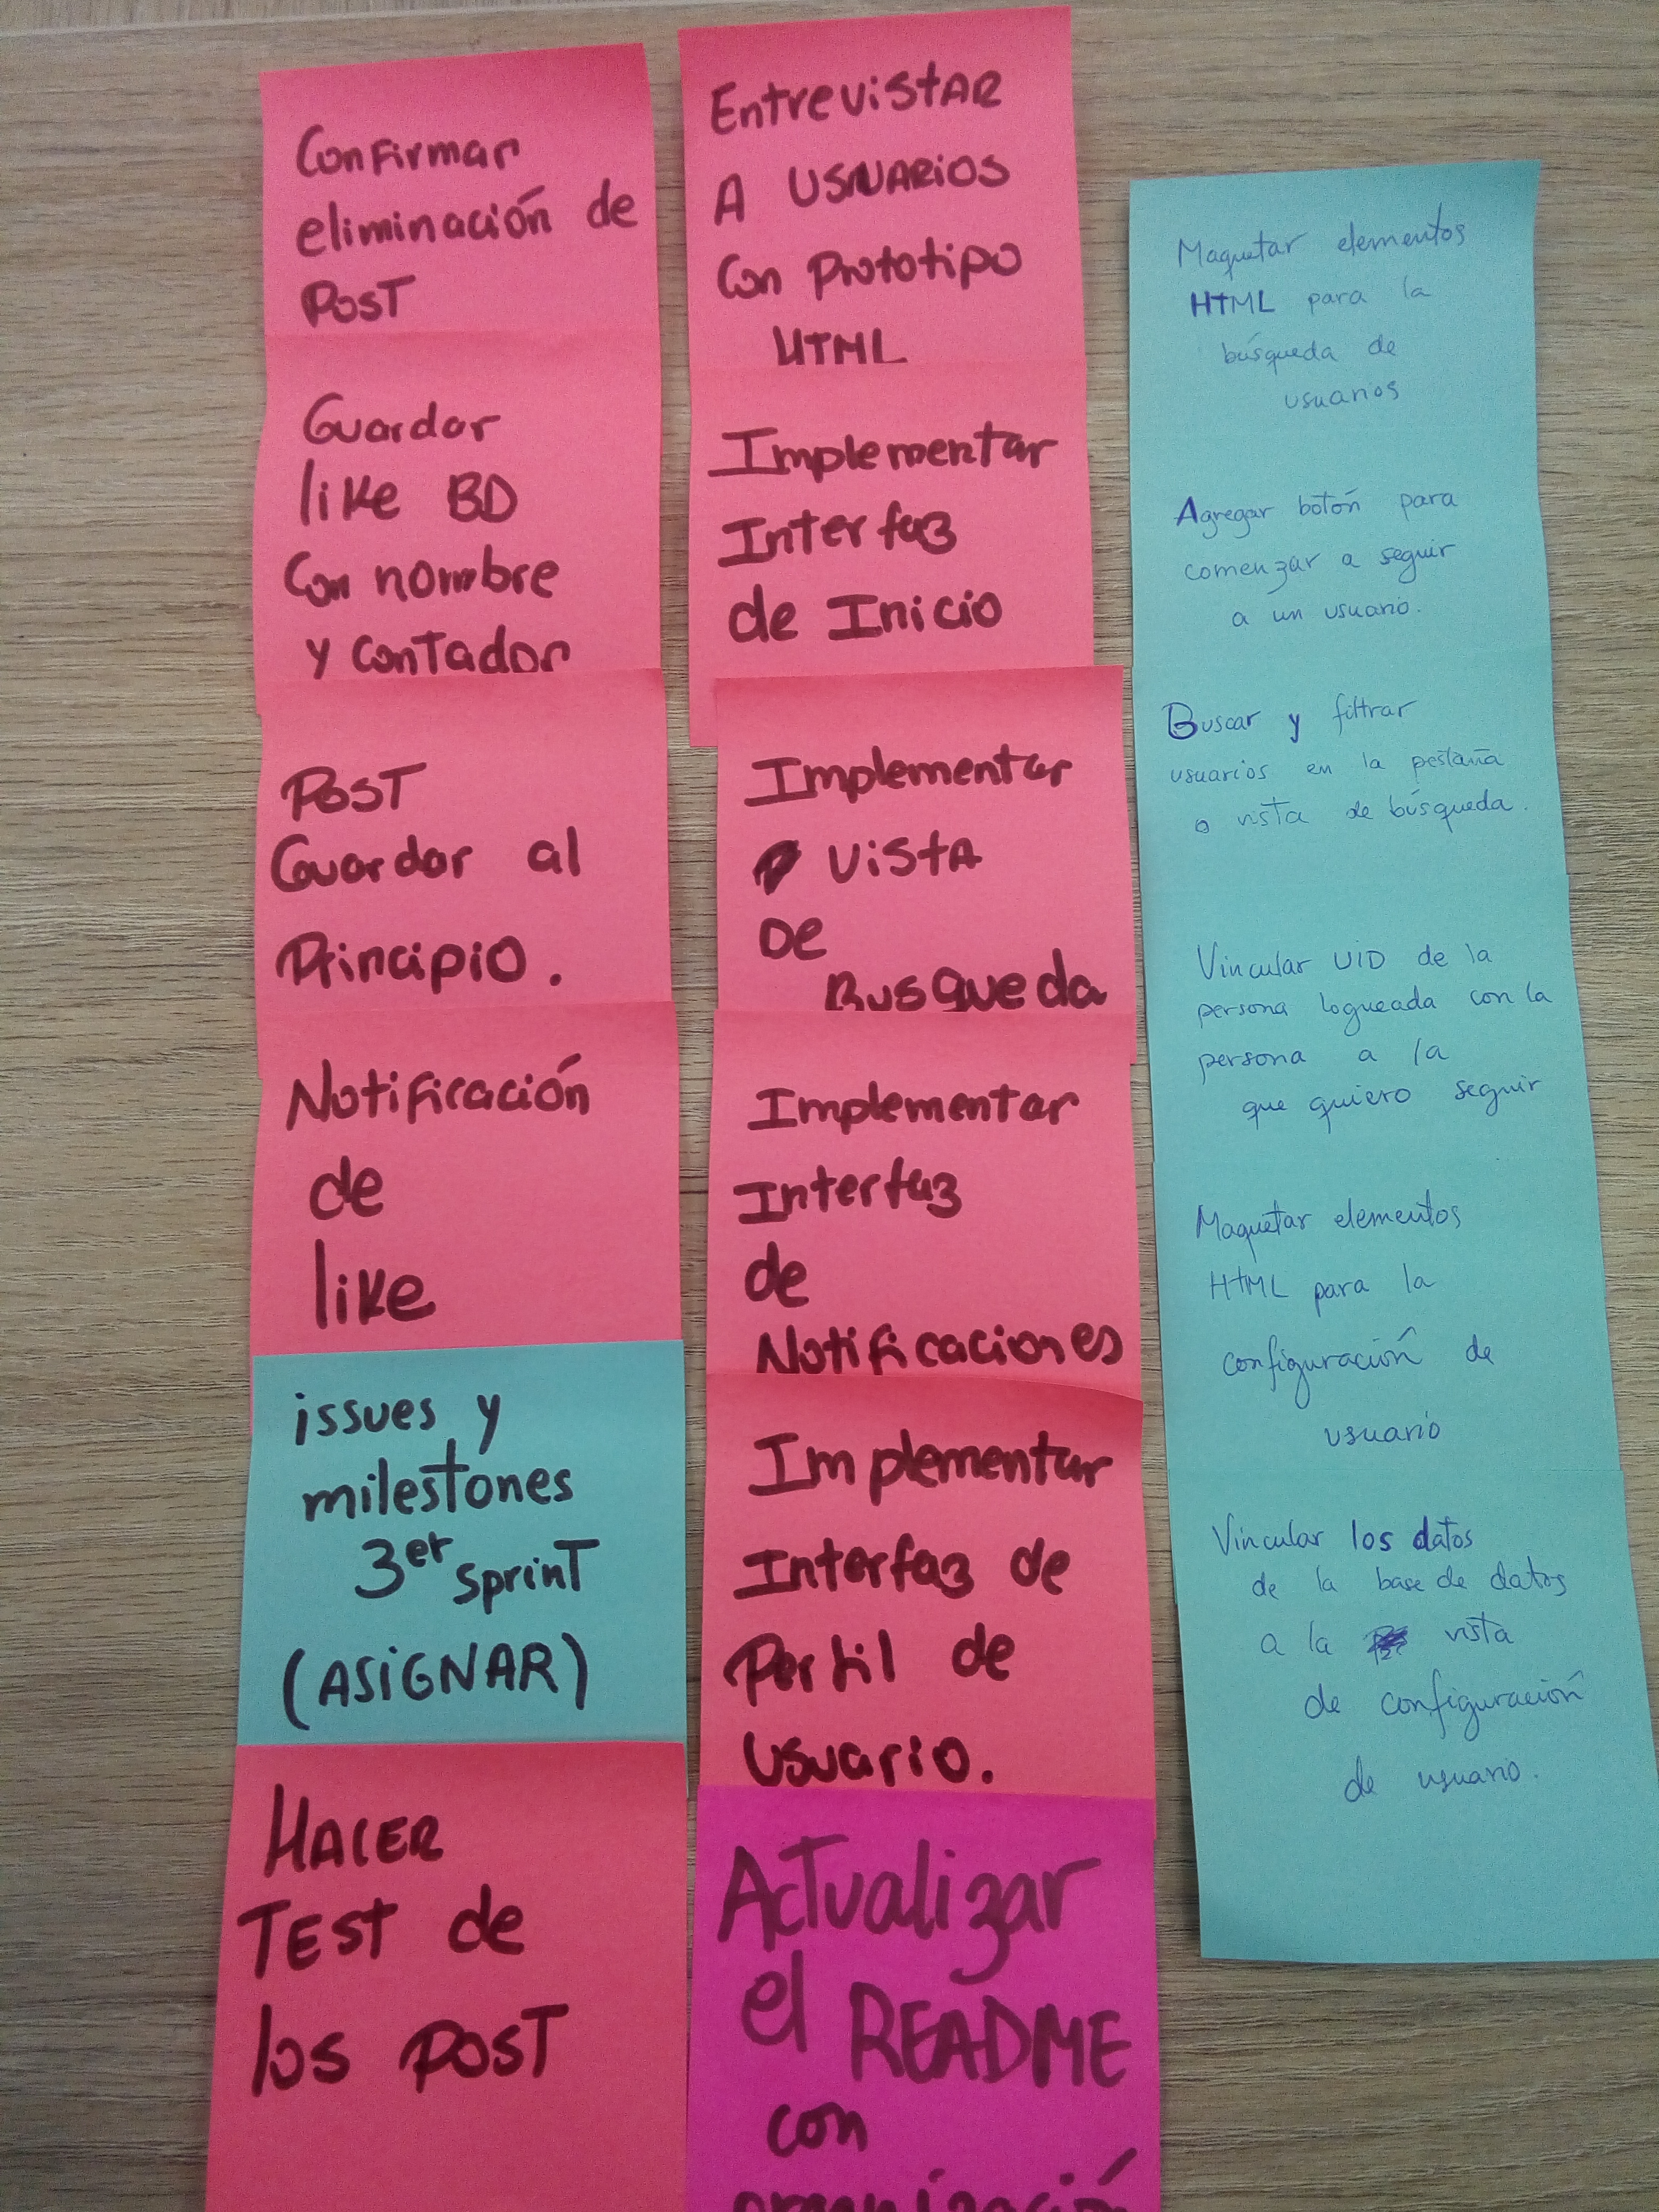 Confirmar
eliminación de
Post
Guardar
like BD
Con nombre
y contador
Post
Guardar al
Principio.
Notificación
de
like
issues y
milestones
3er sprint
(ASIGNAR)
HACER
TEST de
los post
EntrevistAR
A USUARIOS
Con Prototipo
HTML
Implementar
Interfaz
de Inicio
Implementar
VistA
De
Busqueda
Implementar
Interfaz
de
Notificaciones
Implementar
Interfaz de
Perfil de
Usuario.
Actualizar
el README
con
organización
Maquetar elementos
HTML para la
búsqueda de
usuarios
Agregar botón para
comenzar a seguir
a un usuario.
Buscar y filtrar
usuarios en la pestaña
o vista de búsqueda.
Vincular UID de la
persona logueada con la
persona a la
que quiero seguir
Maquetar elementos
HTML para la
configuración de
usuario
Vincular los datos
de la base de datos
a la vista
de configuración
de usuario.